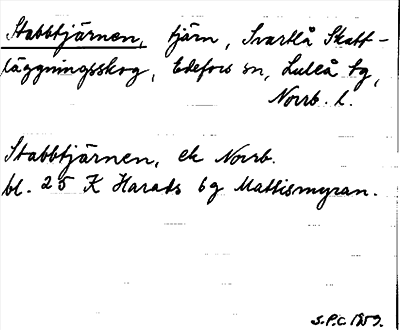 Stabbtjärnen, tjärn, Svartlå Skatt-
läggningsskog, Edefors sn, Luleå tg,
Norrb. l.
Stabbtjärnen, ek Norrb.
bl. 25 K Harads 6g Mattismyran.
S.P.C. 1959.